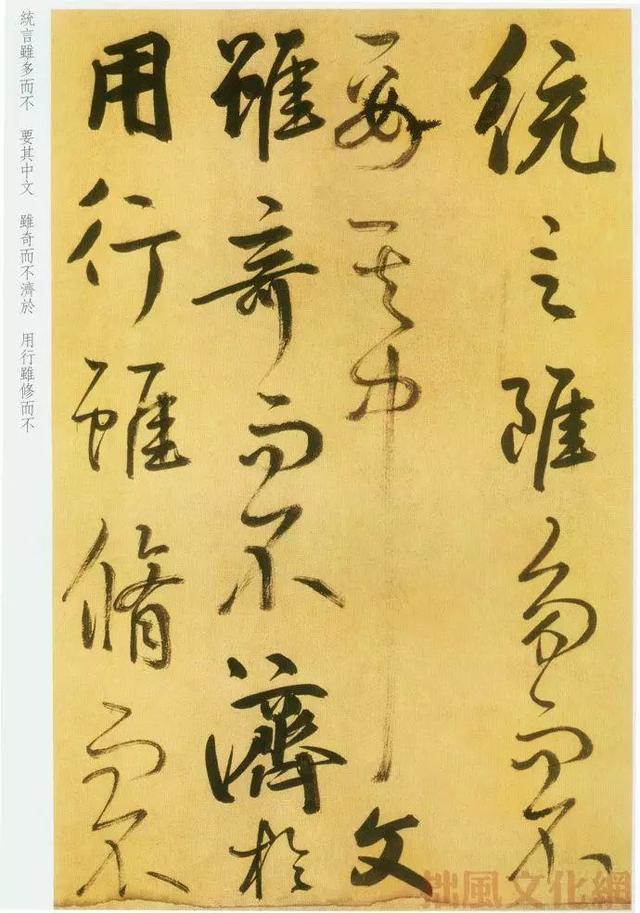 統言雖多而不
要其中文
雖奇而不濟於
用行雖脩而不
統言雖多而不 要其中文 雖奇而不濟於 用行雖修而不
拙風文化網